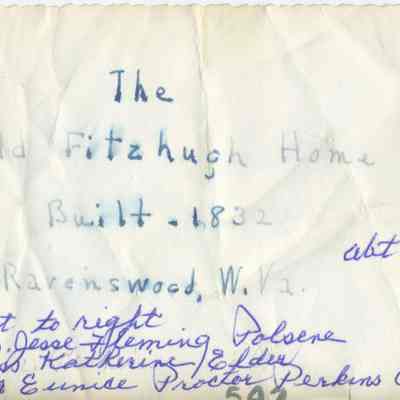 The
ld Fitzhugh Home
Built - 1832
abt
Ravenswood, W. Va.
t to right
. Jesse Fleming Polsene
ss Katherine Elder
Eunice Proctor Perkins
593